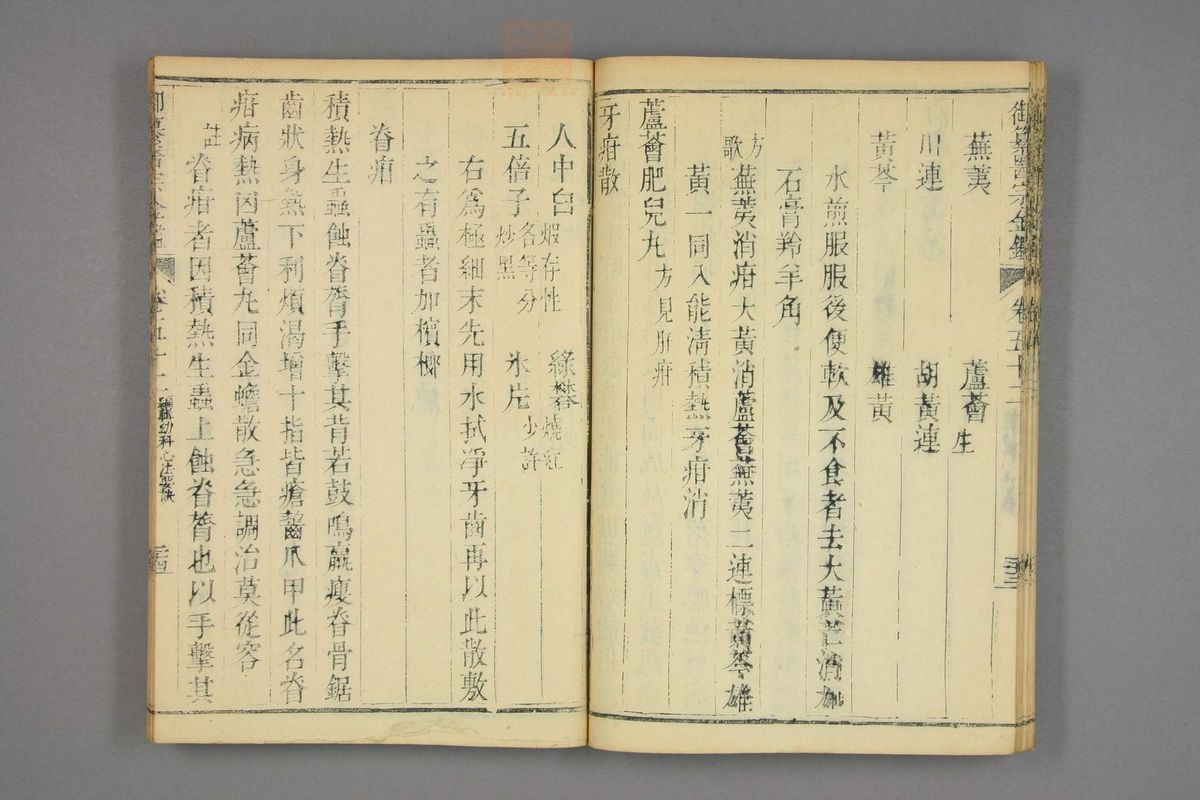 御纂醫宗金鑑 卷五十二
蕪荑 蘆薈生
川連 胡黃連
黃芩 雄黃
水煎服服後便軟及不食者去大黃芒消加
石膏羚羊角
方歌 蕪荑消疳大黃消蘆薈蕪荑二連標黃芩雄
黃一同入能淸積熱牙疳消
蘆薈肥兒丸方見肝疳
牙疳散
人中白煆存性 綠礬燒紅
五倍子炒黑各等分 氷片少許
右爲極細末先用水拭淨牙齒再以此散敷
之有蟲者加檳榔
脊疳
積熱生蟲蝕脊膂手擊其背若鼓鳴羸瘦脊骨鋸
齒狀身熱下利煩渴增十指皆瘡齧爪甲此名脊
疳病熱因蘆薈丸同金蟾散急急調治莫從容
註 脊疳者因積熱生蟲上蝕脊膂也以手擊其
編輯幼科心法要訣